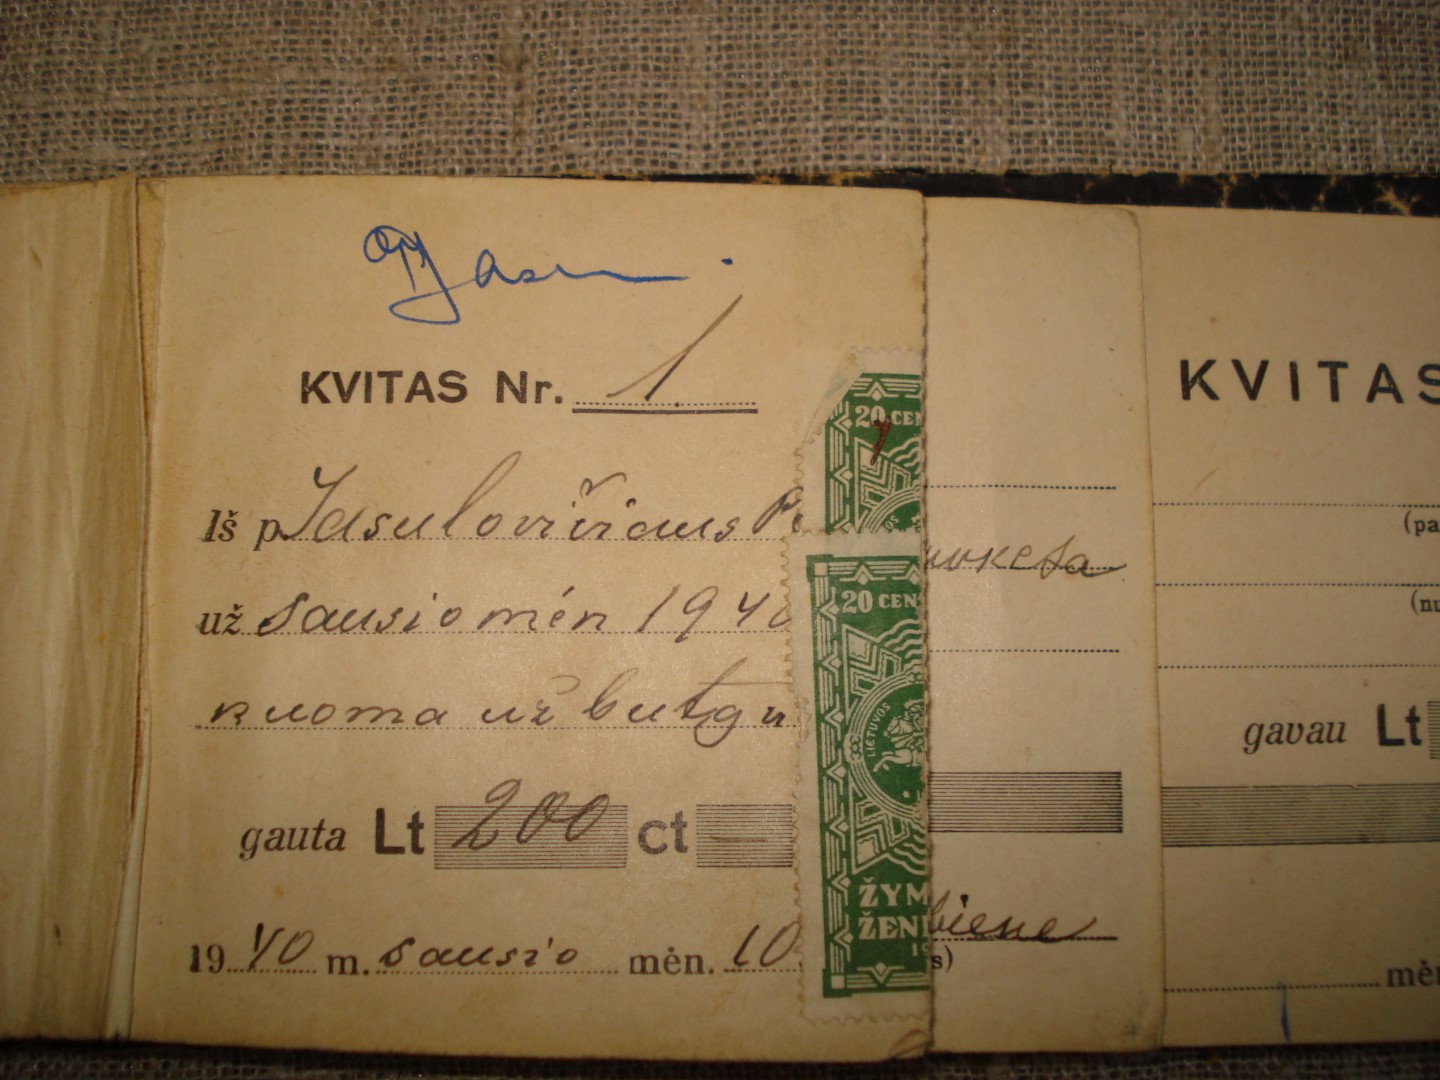 KVITAS Nr. 1
Iš p. Jasulovičiaus
už sausio mėn 1940
nuoma už butą
gauta Lt 200 ct —
1940 m. sausio mėn. 10
20 CEN
20 CEN
LIETUVOS
ŽYM
ŽEN
biene
s)
KVITAS
(pa
(nu
gavau Lt
mėn